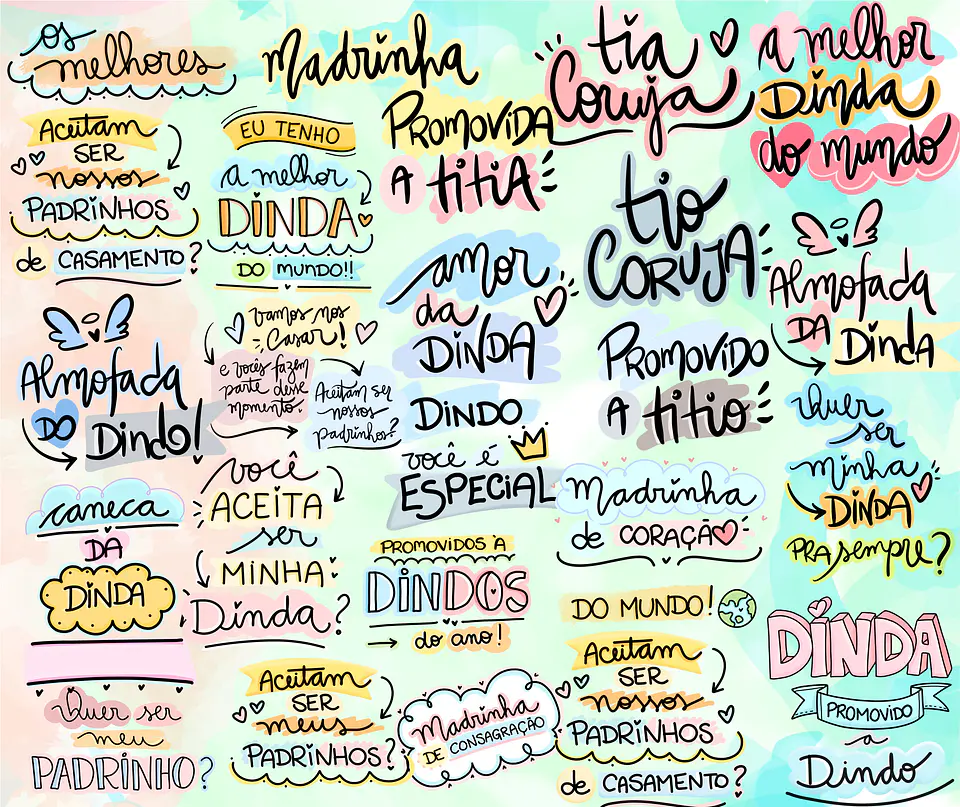 os
melhores
Aceitam
SER
nossos
PADRINHOS
de CASAMENTO?
Almofada
DO Dindo!
caneca
DA
DINDA
Quer ser
meu
PADRINHO?
Madrinha
EU TENHO
a melhor
DINDA
DO MUNDO!!
Vamos nos
Casar!
e vocês fazem
parte desse
momento.
Aceitam ser
nossos
padrinhos?
você
ACEITA
ser
MINHA
Dinda?
Aceitam
SER
meus
PADRINHOS?
PROMOVIDA
A titiA
amor
da
DINDA
DINDO
você é
ESPECIAL
PROMOVIDOS A
DINDOS
do ano!
Madrinha
DE CONSAGRAÇÃO
tia
Coruja
tio
CORUJA
PROMOVIDO
A titio
Madrinha
de CORAÇÃO
DO MUNDO!
Aceitam
SER
nossos
PADRINHOS
de CASAMENTO?
a melhor
Dinda
do mundo
Almofada
DA Dinda
Quer
ser
minha
DINDA
PRA sempre?
DINDA
PROMOVIDO
a
Dindo